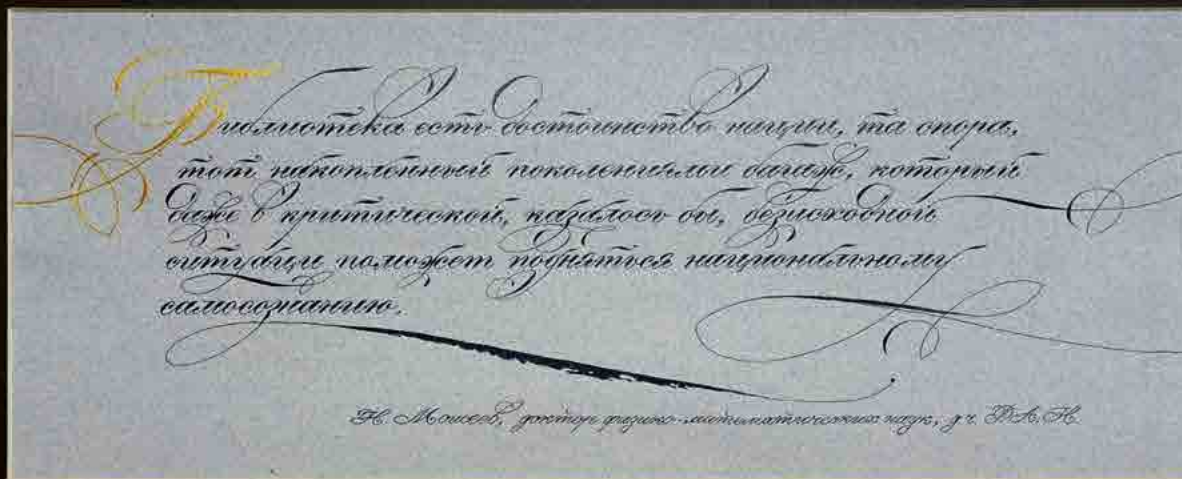 Библиотека есть достоинство нации, та опора,
тот накопленный поколениями багаж, который
даже в критической, казалось бы, безисходной
ситуации поможет подняться национальному
самосознанию.
Н. Моисеев, доктор физико-математических наук, РАН